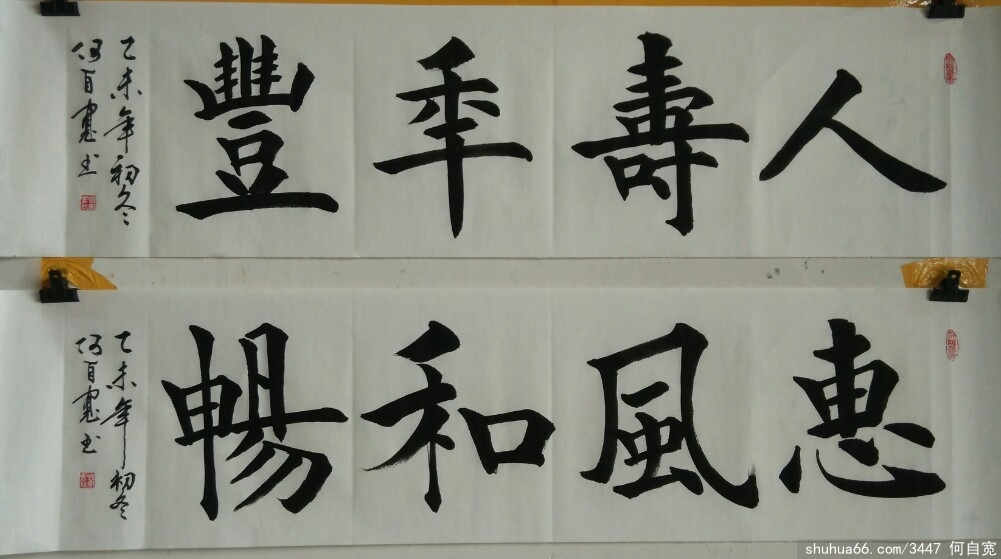 人壽年豐
乙未年初冬
何自寬书
惠風和暢
乙未年初冬
何自寬书
shuhua66.com/3447 何自宽